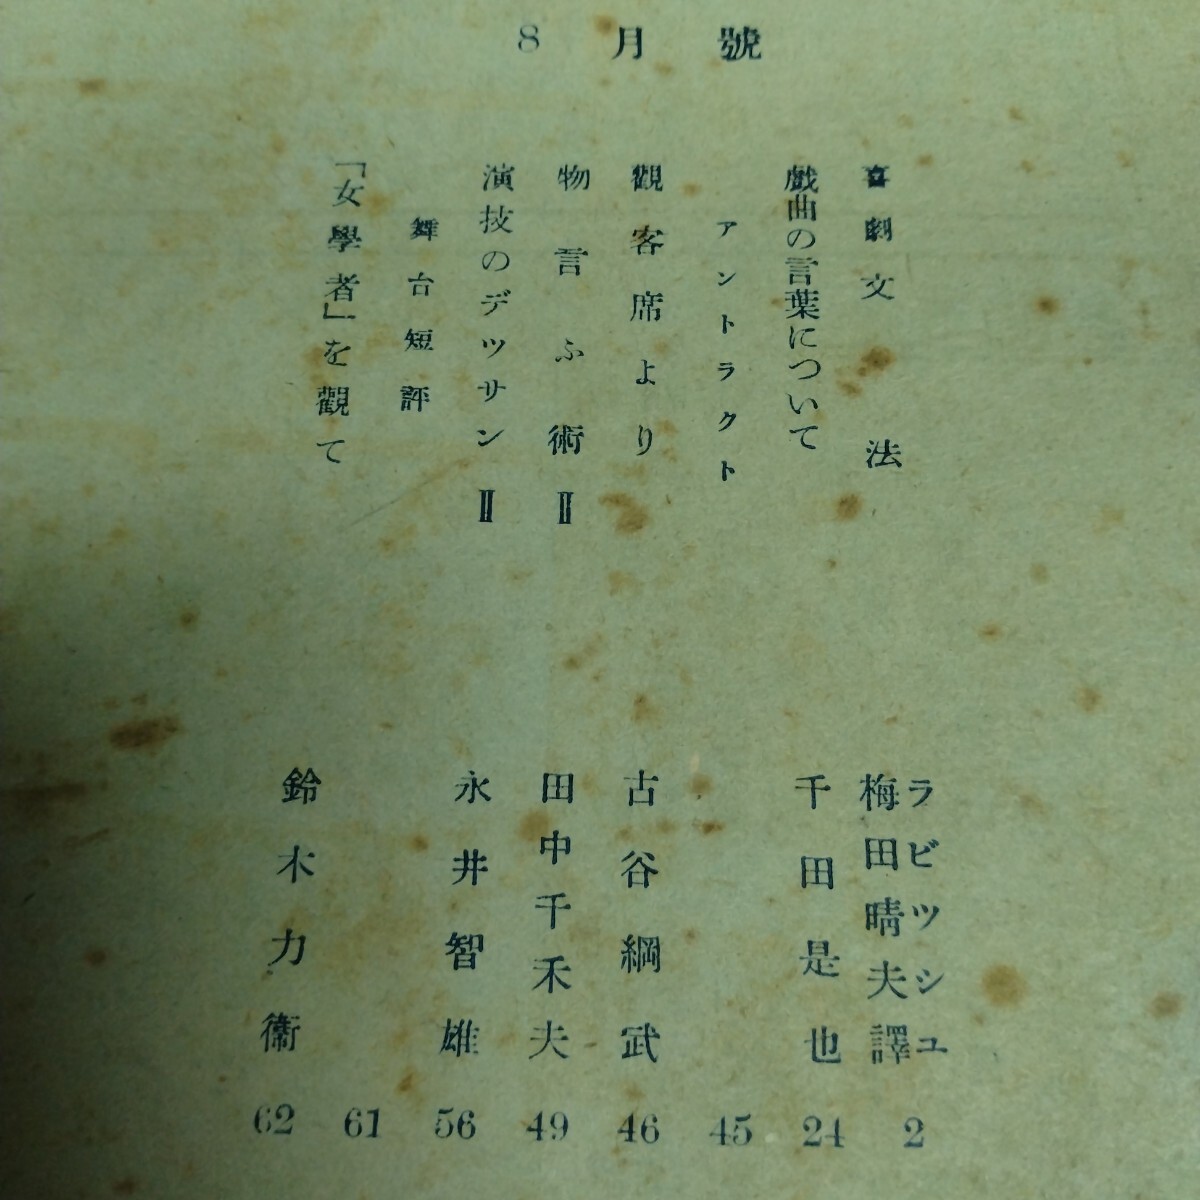 8月號
喜劇文法
ラビツシユ
梅田晴夫譯
2
戲曲の言葉について
千田是也
24
アントラクト
45
觀客席より
古谷綱武
46
物言ふ術Ⅱ
田中千禾夫
49
演技のデツサンⅡ
永井智雄
56
舞台短評
61
「女學者」を觀て
鈴木力衞
62